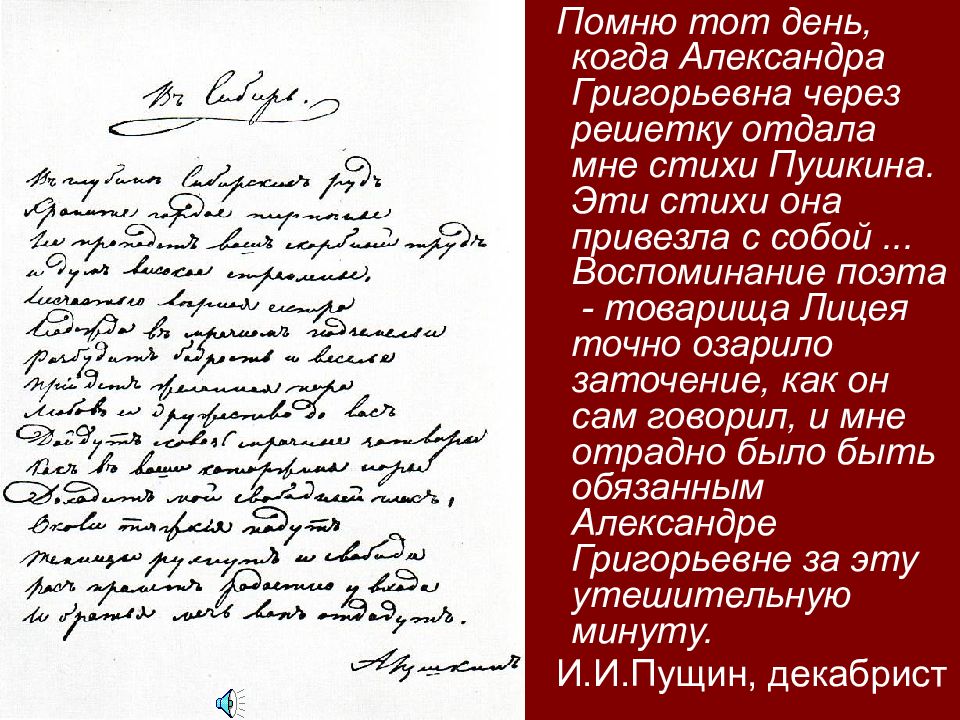 Въ Сибирь.
Въ глубинѣ Сибирскихъ рудъ
Храните гордое терпѣнье
Не пропадетъ вашъ скорбный трудъ
и думъ высокое стремленье.
Несчастью вѣрная сестра
Надежда въ мрачномъ подземельи
Разбудитъ бодрость и веселье
Прійдетъ желанная пора
Любовь и дружество до васъ
Дойдутъ сквозь мрачные затворы
Какъ въ ваши каторжныя норы
Доходитъ мой свободный гласъ,
Оковы тяжкія падутъ
Темницы рухнутъ и свобода
Васъ приметъ радостно у входа
И братья мечъ вамъ отдадутъ.
А Пушкинъ
Помню тот день,
когда Александра
Григорьевна через
решетку отдала
мне стихи Пушкина.
Эти стихи она
привезла с собой ...
Воспоминание поэта
- товарища Лицея
точно озарило
заточение, как он
сам говорил, и мне
отрадно было быть
обязанным
Александре
Григорьевне за эту
утешительную
минуту.
И.И.Пущин, декабрист